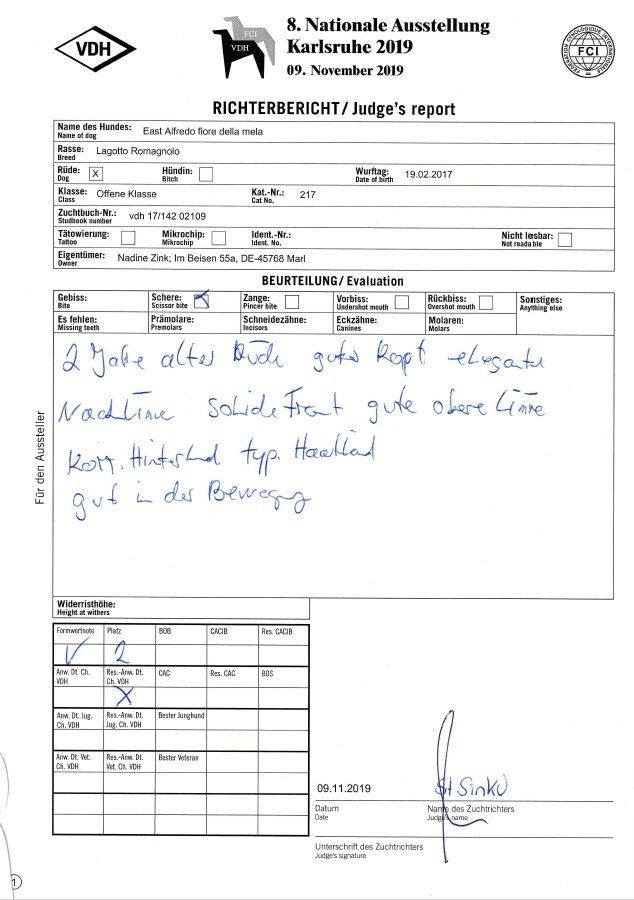 VDH
FCI
VDH
8. Nationale Ausstellung
Karlsruhe 2019
09. November 2019
FEDERATION CYNOLOGIQUE INTERNATIONALE
FCI
RICHTERBERICHT/Judge's report
Name des Hundes: East Alfredo fiore della mela
Name of dog
Rasse: Lagotto Romagnolo
Breed
Rüde: X Hündin: Wurftag: 19.02.2017
Dog Bitch Date of birth
Klasse: Offene Klasse Kat.-Nr.: 217
Class Cat No.
Zuchtbuch-Nr.: vdh 17/142 02109
Studbook number
Tätowierung: Mikrochip: Ident.-Nr.: Nicht lesbar:
Tattoo Microchip Ident. No. Not readable
Eigentümer: Nadine Zink; Im Beisen 55a, DE-45768 Marl
Owner
BEURTEILUNG/Evaluation
Gebiss: Schere: X Zange: Vorbiss: Rückbiss: Sonstiges:
Bite Scissor bite Pincer bite Undershot mouth Overshot mouth Anything else
Es fehlen: Prämolare: Schneidezähne: Eckzähne: Molaren:
Missing teeth Premolars Incisors Canines Molars
2 Jahre alter Rüde guter Kopf elegante
solide Front gute obere Linie
korr. Hinterhand typ. Haarkleid
gut in der Bewegung
Für den Aussteller
Widerristhöhe:
Height at withers
Formwertnote Platz BOB CACIB Res. CACIB
V 2
Anw. Dt. Ch. Res.-Anw. Dt. CAC Res. CAC BOS
VDH Ch. VDH
X
Anw. Dt. Jug. Res.-Anw. Dt. Bester Junghund
Ch. VDH Jug. Ch. VDH
Anw. Dt. Vet. Res.-Anw. Dt. Bester Veteran
Ch. VDH Vet. Ch. VDH
09.11.2019
Datum Name des Zuchtrichters
Date Judge's name
Unterschrift des Zuchtrichters
Judge's signature
1